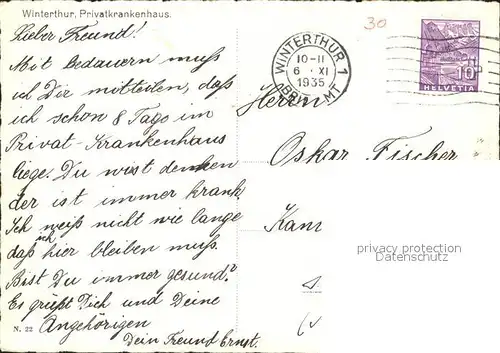 Winterthur, Privatkrankenhaus.
Lieber Freund!
Mit Bedauern muss
ich Dir mitteilen, daß
ich schon 8 Tage im
Privat-Krankenhaus
liege. Du wirst denken
der ist immer krank.
Ich weiß nicht wie lange
ich
daß hier bleiben muß.
Bist Du immer gesund?
Es grüßt Dich und Deine
Angehörigen
Dein Freund Ernst.
N. 22
30
WINTERTHUR 1
10-11
6. XI
1935
10
HELVETIA
Herrn
Oskar Fischer
Kan
privacy protection
Datenschutz